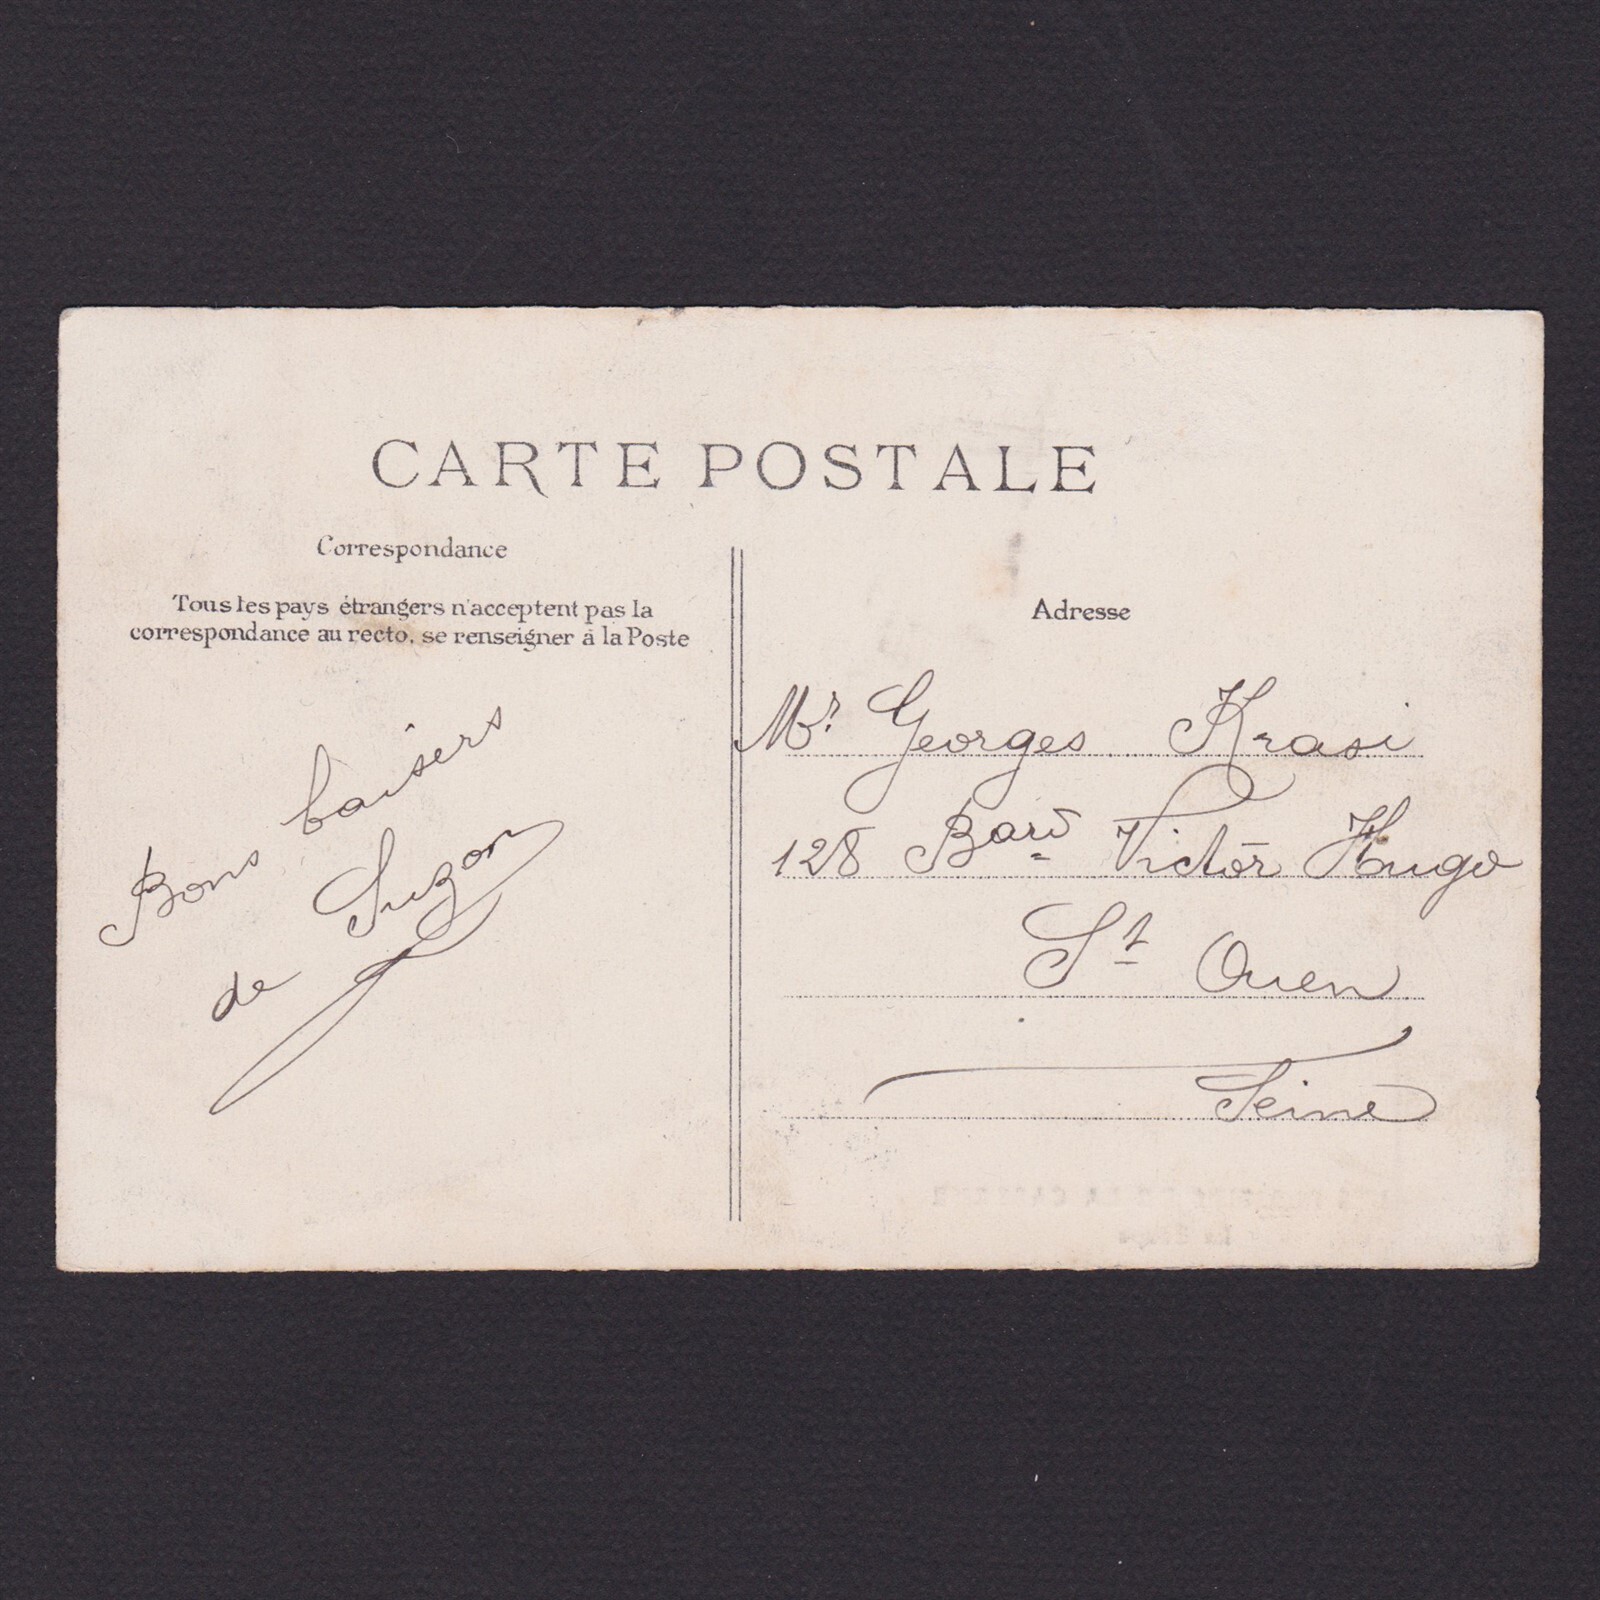 CARTE POSTALE
Correspondance
Tous les pays étrangers n'acceptent pas la
correspondance au recto, se renseigner à la Poste
Bons baisers
de Suzon
Adresse
Mr Georges Krasi
128 Bard Victor Hugo
St Ouen
Seine